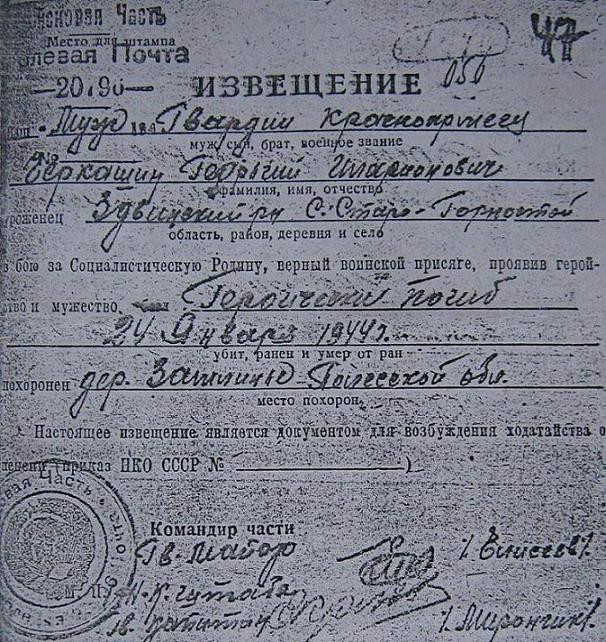 Часть
Место для штампа
левая Почта
—20196—
47
ИЗВЕЩЕНИЕ 050
Муж Гвардии красноармеец
муж, сын, брат, военное звание
Черкашин Георгий Илларионович
фамилия, имя, отчество
уроженец Здвинский рн с. Старо-Горносталь
область, район, деревня и село
в бою за Социалистическую Родину, верный воинской присяге, проявив герой-
ство и мужество, Героически погиб
24 Января 1944г.
убит, ранен и умер от ран
похоронен дер. Полесской обл.
место похорон.
Настоящее извещение является документом для возбуждения ходатайства о
пенсии (приказ НКО СССР № )
вая Часть
Командир части
Гв. Майор /Енисеев/.
Н-к Штаба
Гв. Капитан /Мирончик/.